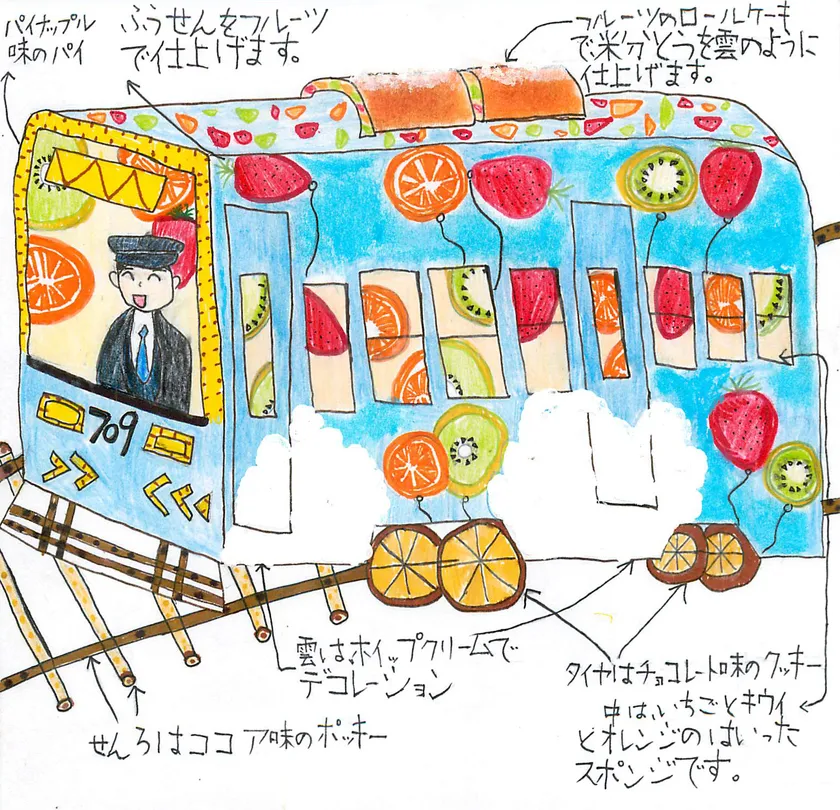 パイナップル
味のパイ
ふうせんをフルーツ
で仕上げます。
フルーツのロールケーキ
で、米分とうを雲のように
仕上げます。
709
雲は、ホイップクリームで
デコレーション
タイヤはチョコレート味のクッキー
中は、いちごとキウイ
とオレンジのはいった
スポンジです。
せんろはココア味のポッキー